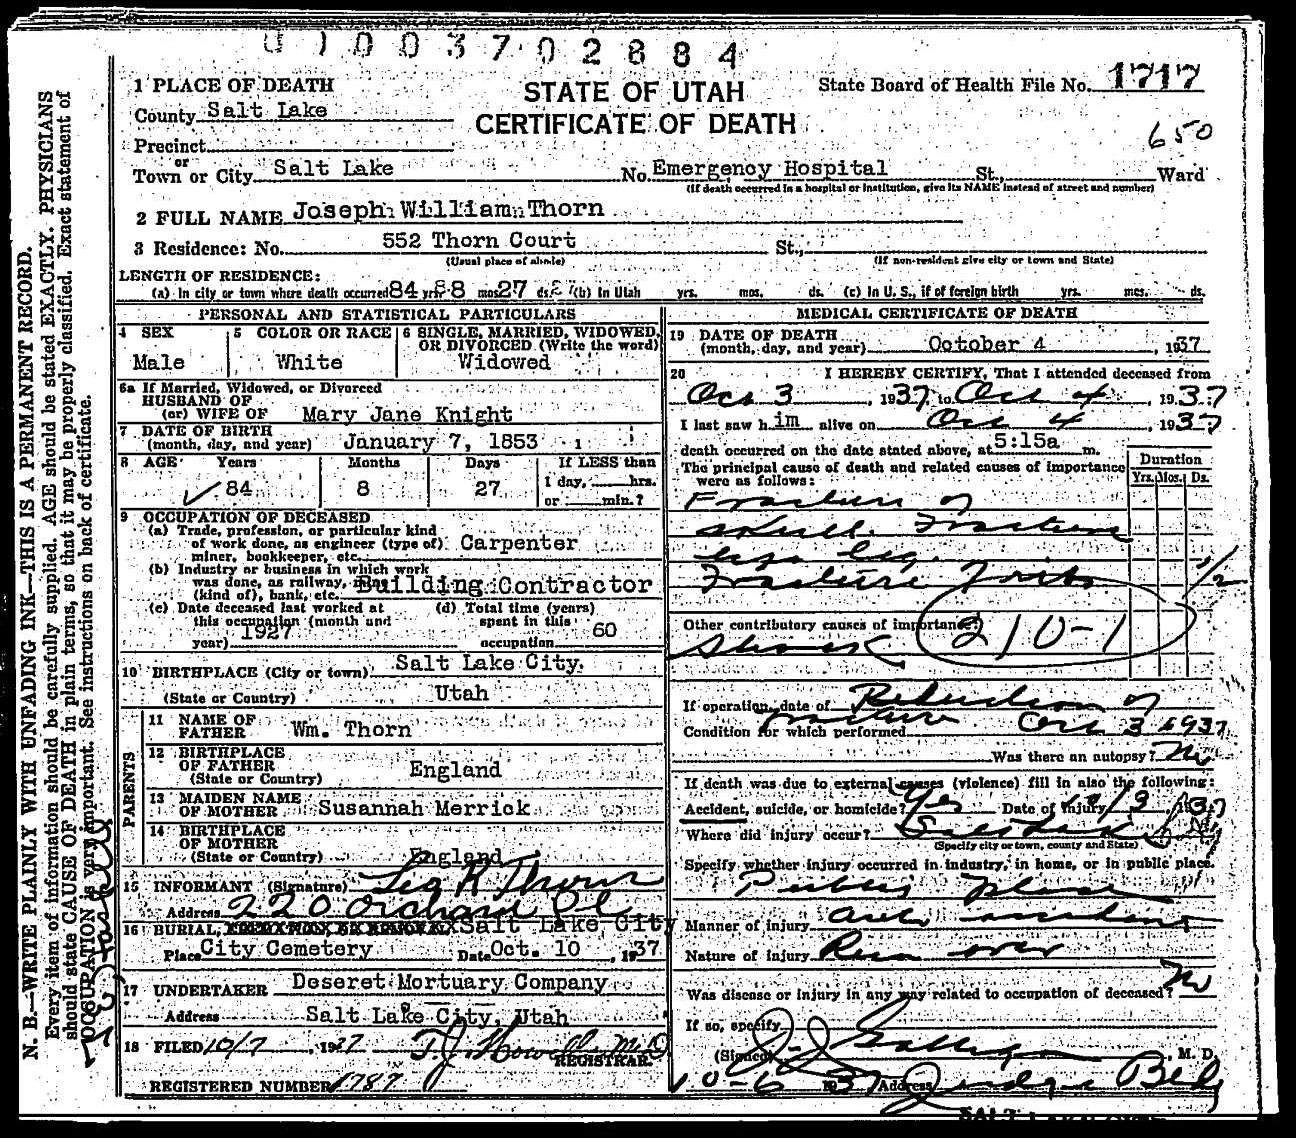 0 1 0 0 3 7 0 2 6 8 4
1 PLACE OF DEATH
STATE OF UTAH
CERTIFICATE OF DEATH
State Board of Health File No. 1717
County Salt Lake
650
Precinct
or
Town or City Salt Lake No. Emergency Hospital St., Ward
(If death occurred in a hospital or institution, give its NAME instead of street and number)
2 FULL NAME Joseph William Thorn
3 Residence: No. 552 Thorn Court St.,
(Usual place of abode) (If non-resident give city or town and State)
LENGTH OF RESIDENCE:
(a) In city or town where death occurred 84 yrs. 8 mos. 27 ds. (b) In Utah yrs. mos. ds. (c) In U. S., if of foreign birth yrs. mos. ds.
PERSONAL AND STATISTICAL PARTICULARS
4 SEX
Male
5 COLOR OR RACE
White
6 SINGLE, MARRIED, WIDOWED,
OR DIVORCED (Write the word)
Widowed
6a If Married, Widowed, or Divorced
HUSBAND OF
(or) WIFE OF Mary Jane Knight
7 DATE OF BIRTH
(month, day, and year) January 7, 1853
8 AGE Years Months Days If LESS than
84 8 27 1 day, hrs.
or min.?
9 OCCUPATION OF DECEASED
(a) Trade, profession, or particular kind
of work done, as engineer (type of) Carpenter
miner, bookkeeper, etc.
(b) Industry or business in which work
was done, as railway,
(kind of), bank, etc. Building Contractor
(c) Date deceased last worked at
this occupation (month and
year) 1927
(d) Total time (years)
spent in this
occupation 60
10 BIRTHPLACE (City or town) Salt Lake City.
(State or Country) Utah
PARENTS
11 NAME OF
FATHER Wm. Thorn
12 BIRTHPLACE
OF FATHER
(State or Country) England
13 MAIDEN NAME
OF MOTHER Susannah Merrick
14 BIRTHPLACE
OF MOTHER
(State or Country) England
15 INFORMANT (Signature) Leo R Thorn
Address 220 Orchard Pl
16 BURIAL, Salt Lake City
Place City Cemetery Date Oct. 10, 1937
17 UNDERTAKER Deseret Mortuary Company
Address Salt Lake City, Utah
18 FILED 10/7, 1937 T.J. Howells M.D.
REGISTRAR
REGISTERED NUMBER 1787
MEDICAL CERTIFICATE OF DEATH
19 DATE OF DEATH
(month, day, and year) October 4, 1937
20 I HEREBY CERTIFY, That I attended deceased from
Oct 3, 1937 to Oct 4, 1937
I last saw him alive on Oct 4, 1937
death occurred on the date stated above, at 5:15a m.
The principal cause of death and related causes of importance
were as follows:
Duration
Yrs. Mos. Ds.
Fracture of
skull. Fracture
leg.
Fracture 1/2
Other contributory causes of importance:
210-1
Shock
If operation, date of Reduction of
fracture Oct 3 1937
Condition for which performed
Was there an autopsy? No
If death was due to external causes (violence) fill in also the following:
Accident, suicide, or homicide? Yes Date of injury 10/3 1937
Where did injury occur? Salt Lake
(Specify city or town, county and State)
Specify whether injury occurred in industry, in home, or in public place.
Public place
Manner of injury auto accident
Nature of injury Run over
Was disease or injury in any way related to occupation of deceased? No
If so, specify
(Signed) , M. D.
10-6 1937 Address Judge Bldg
N. B.—WRITE PLAINLY WITH UNFADING INK—THIS IS A PERMANENT RECORD.
Every item of information should be carefully supplied. AGE should be stated EXACTLY. PHYSICIANS
should state CAUSE OF DEATH in plain terms, so that it may be properly classified. Exact statement of
OCCUPATION is very important. See instructions on back of certificate.